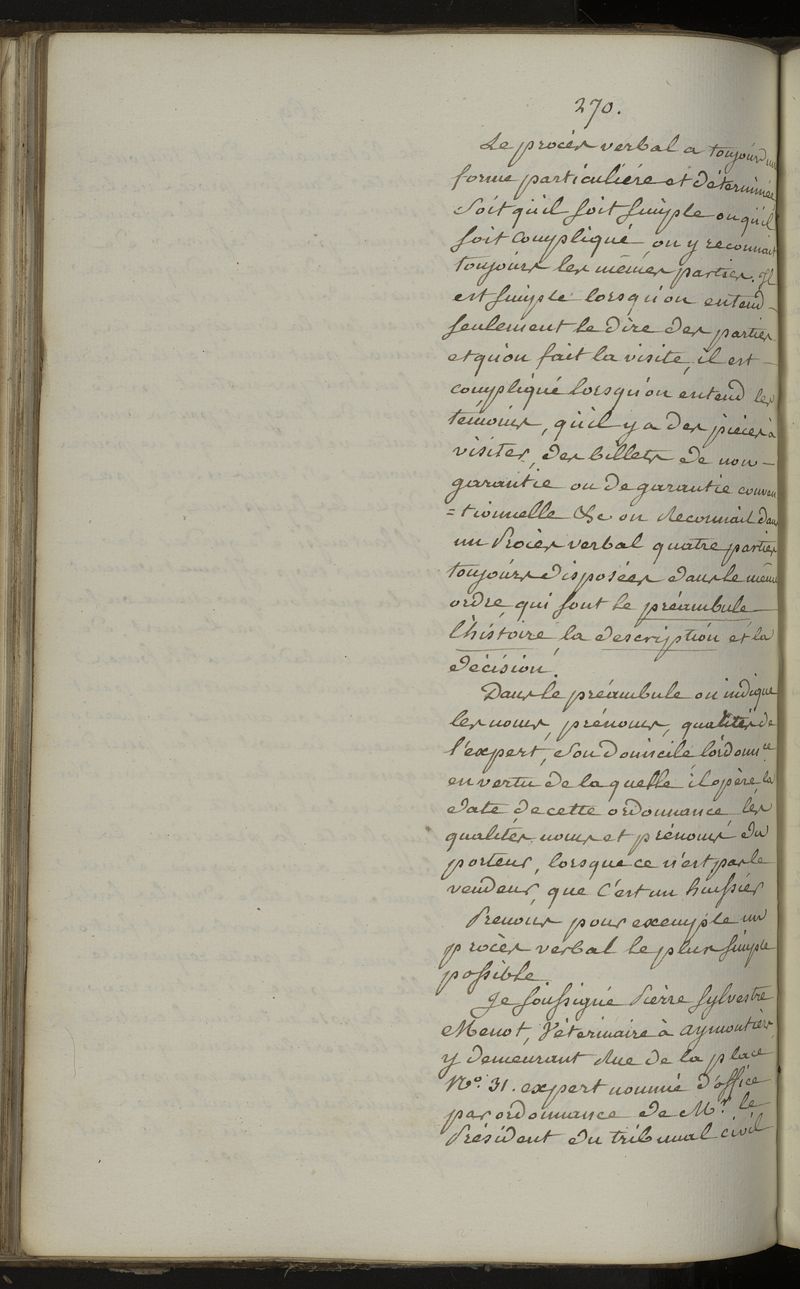 270.
Le procès verbal a toujours une
forme particulière et déterminée
Soit qu'il soit simple ou qu'il
soit compliqué, on y reconnait
toujours les mêmes parties. Il
est simple lorsqu'on entend
seulement le dire des parties
et qu'on fait la visite, il est
compliqué lorsqu'on entend les
temoins, qu'il y a des pièces à
visiter, des billets de non-
garantie ou de garantie conven
=tionnelle &c on reconnait dans
un Procès verbal quatre parties
toujours disposées dans le même
ordre, qui sont le préambule
l'histoire la description et la
décision.
Dans le préambule on indique
les noms, prénoms, qualités de
l'expert, son domicile l'ordonnce
en vertu de laquelle il opère la
date de cette ordonnance les
qualités noms et prénoms du
porteur, lorsque ce n'est pas le
vendeur, que c'est un huissier
Prenons pour exemple un
procès verbal le plus simple
possible
Je soussigné Pierre Sylvestre
Menot, Véterinaire à Aymoutiers,
y demeurant Rue de la place
N.º 31. expert nommé d'office
par ordonnance de M.r le
Président du tribunal civil